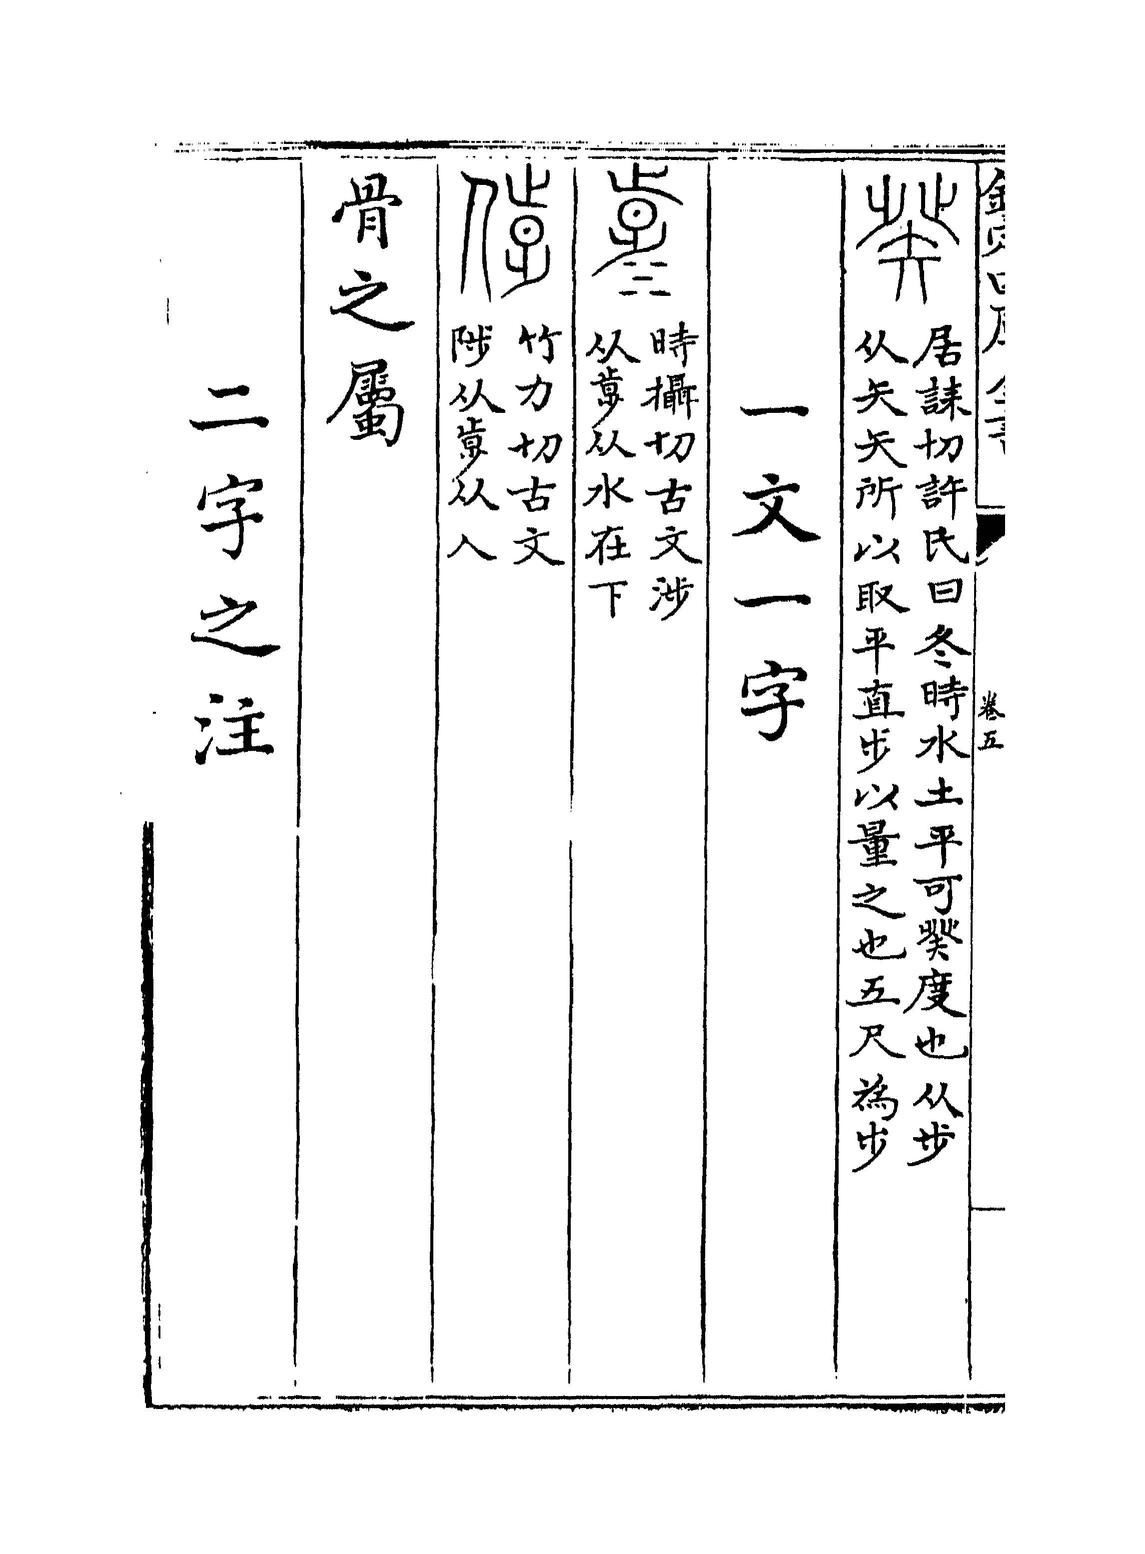 欽定四庫全書
卷五
居誄切許氏曰冬時水土平可癸度也从步
从矢矢所以取平直步以量之也五尺為步
一文一字
時攝切古文涉
从𣥿从水在下
竹力切古文
陟从𣥿从人
骨之屬
二字之注